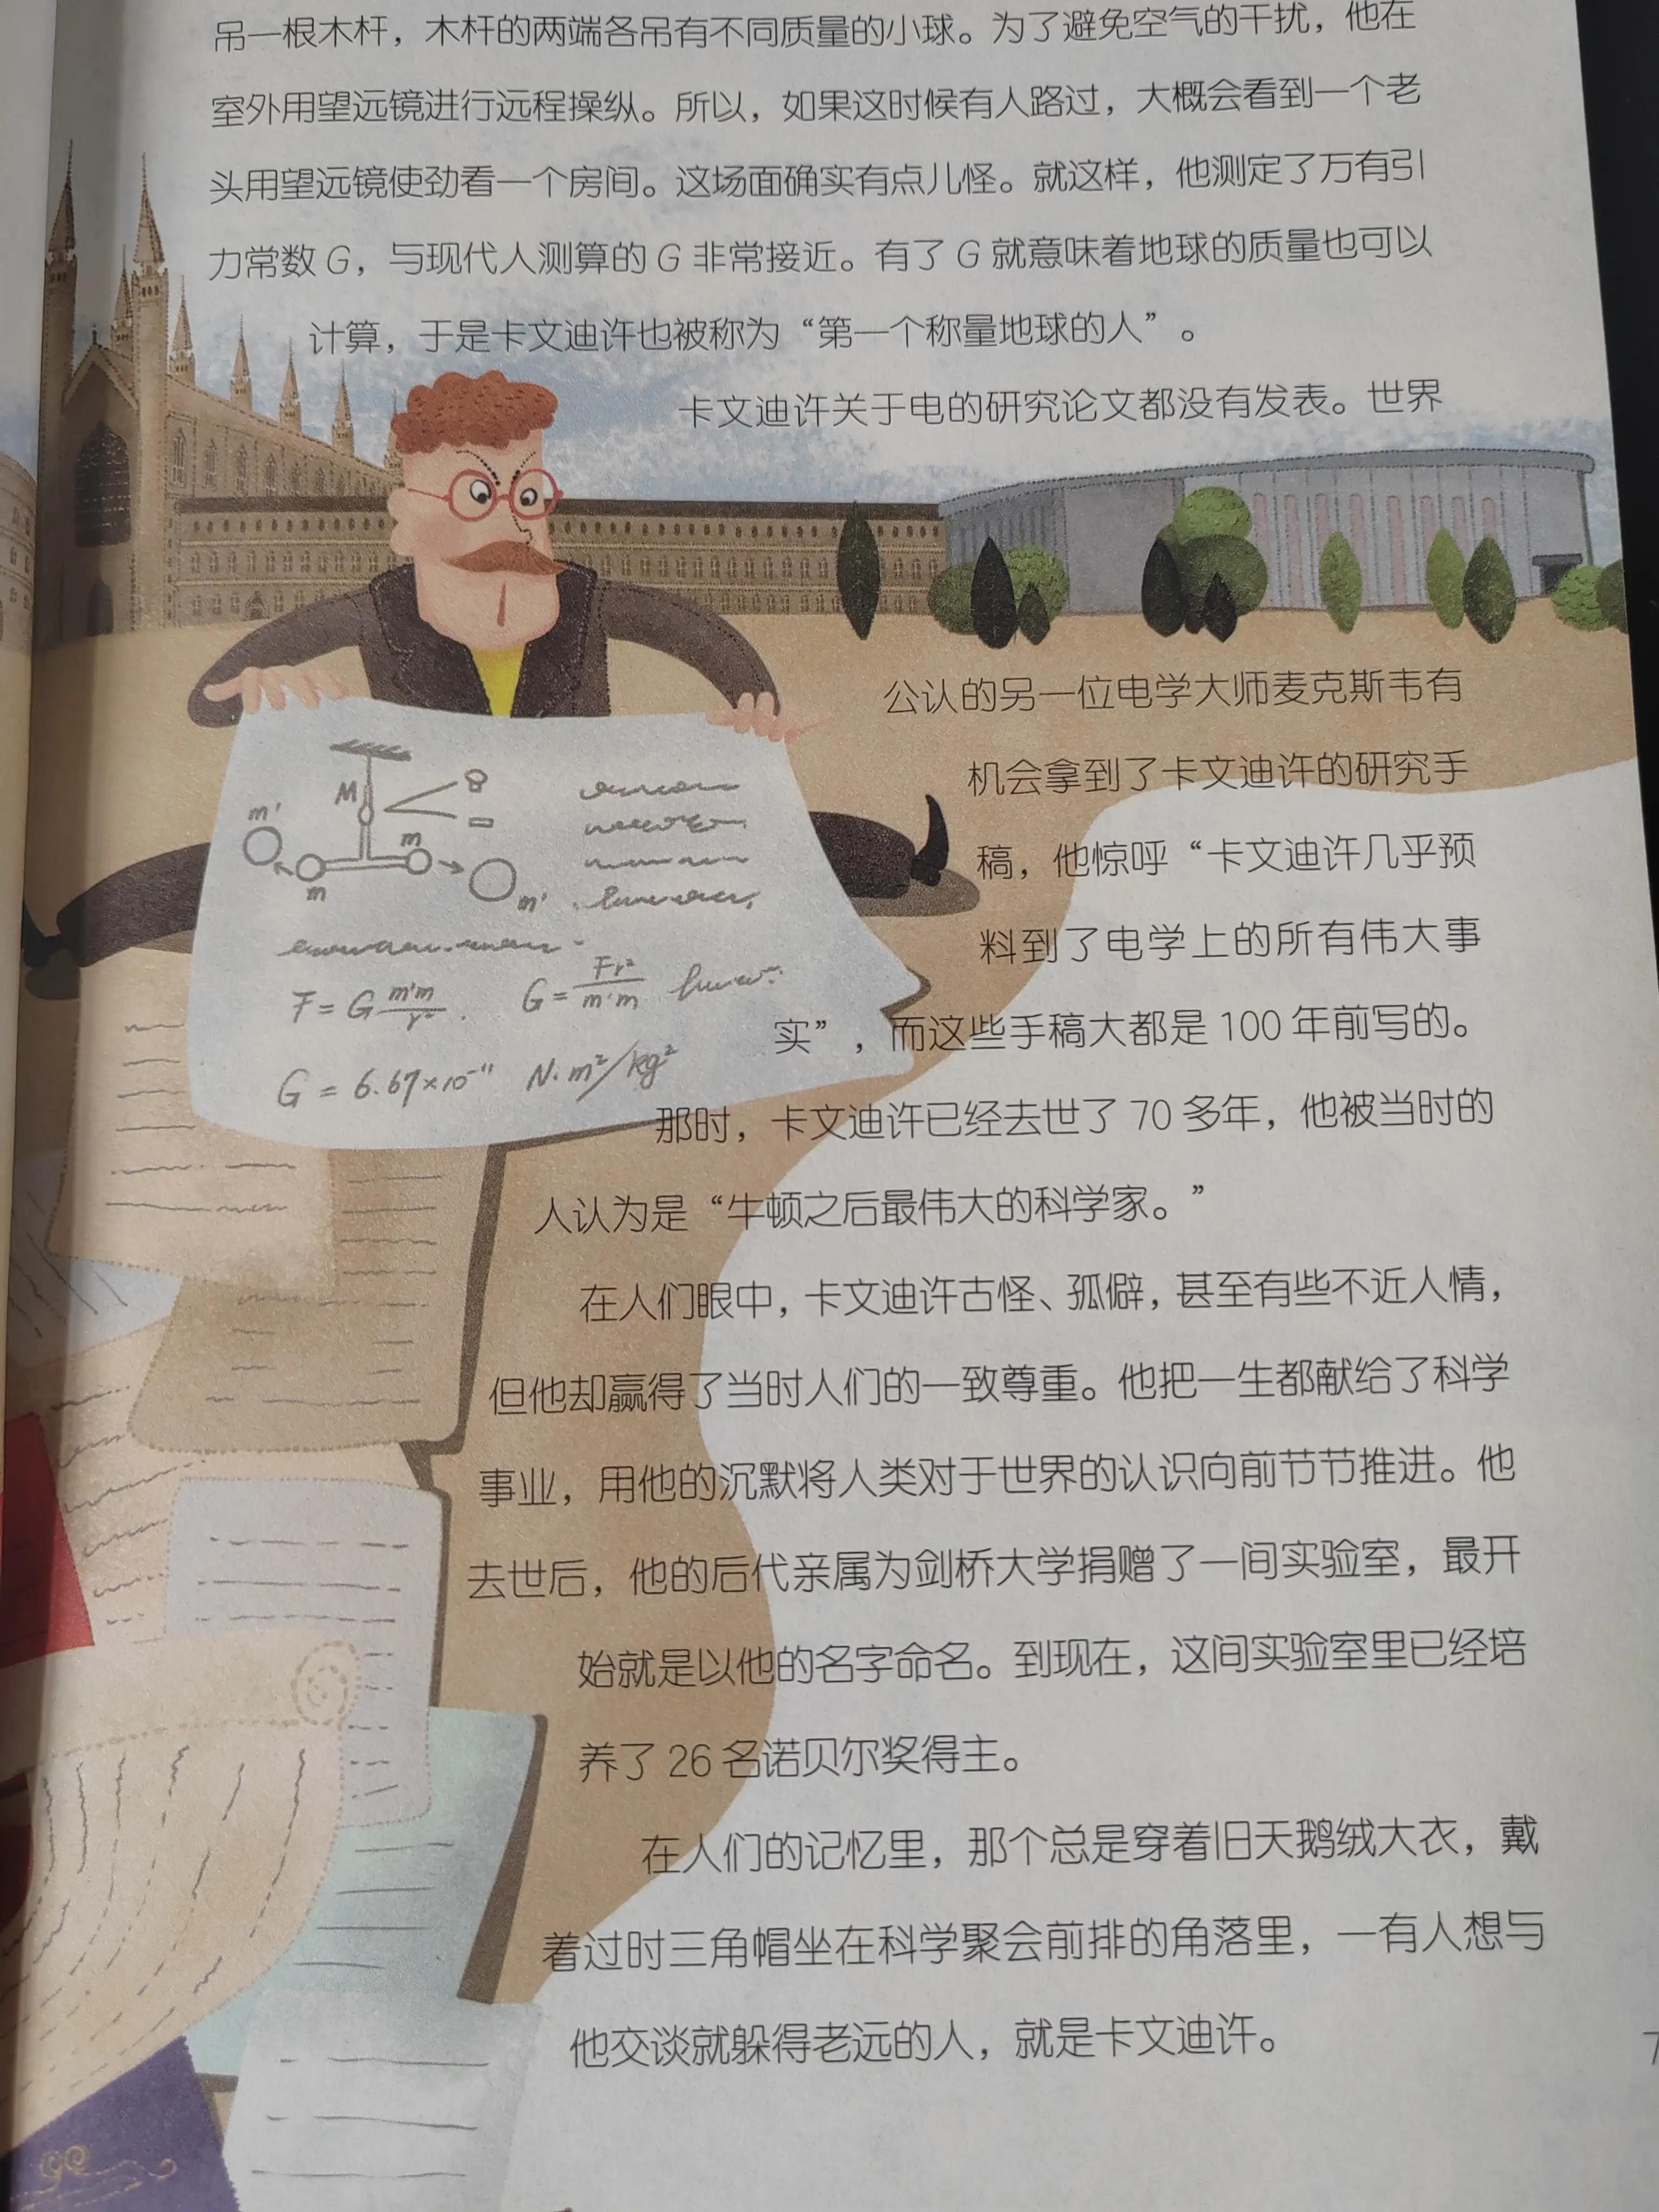 吊一根木杆，木杆的两端各吊有不同质量的小球。为了避免空气的干扰，他在
室外用望远镜进行远程操纵。所以，如果这时候有人路过，大概会看到一个老
头用望远镜使劲看一个房间。这场面确实有点儿怪。就这样，他测定了万有引
力常数 G，与现代人测算的 G 非常接近。有了 G 就意味着地球的质量也可以
计算，于是卡文迪许也被称为“第一个称量地球的人”。
卡文迪许关于电的研究论文都没有发表。世界
公认的另一位电学大师麦克斯韦有
机会拿到了卡文迪许的研究手
稿，他惊呼“卡文迪许几乎预
料到了电学上的所有伟大事
实”，而这些手稿大都是 100 年前写的。
那时，卡文迪许已经去世了 70 多年，他被当时的
人认为是“牛顿之后最伟大的科学家。”
在人们眼中，卡文迪许古怪、孤僻，甚至有些不近人情，
但他却赢得了当时人们的一致尊重。他把一生都献给了科学
事业，用他的沉默将人类对于世界的认识向前节节推进。他
去世后，他的后代亲属为剑桥大学捐赠了一间实验室，最开
始就是以他的名字命名。到现在，这间实验室里已经培
养了 26 名诺贝尔奖得主。
在人们的记忆里，那个总是穿着旧天鹅绒大衣，戴
着过时三角帽坐在科学聚会前排的角落里，一有人想与
他交谈就躲得老远的人，就是卡文迪许。
M
m'
m
m
m'
F = G m'm/r²
G = Fr²/m'm
G = 6.67×10⁻¹¹ N·m²/kg²